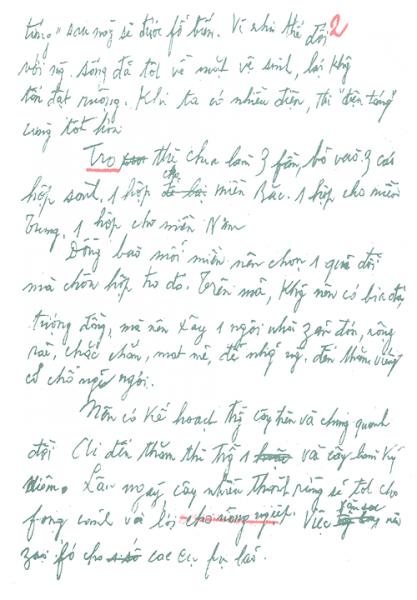 táng" sau này sẽ được fổ biến. Vì như thế đối 2
với ng. sống đã tốt về mặt vệ sinh, lại khg
tốn đất ruộng. Khi ta có nhiều điện, thì "điện táng"
càng tốt hơn.
Tro thì chia làm 3 fần, bỏ vào 3 cái
hộp sành, 1 hộp cho miền Bắc. 1 hộp cho miền
Trung, 1 hộp cho miền Nam
Đồng bào mỗi miền nên chọn 1 quả đồi
mà chôn hộp tro đó. Trên mả, khg nên có bia đá,
tượng đồng, mà nên xây 1 ngôi nhà zản đơn, rộng
rãi, chắc chắn, mát mẻ, để nhữg ng. đến thăm viếng
có chỗ nghỉ ngơi.
Nên có kế hoạch trồg cây trên và chung quanh
đồi. Ai đến thăm thì trồg 1 vài cây làm kỷ
niệm. Lâu ngày cây nhiều thành rừng sẽ tốt cho
fong cảnh và lợi cho nông nghiệp. Việc săn sóc nên
zao fó cho các cụ fụ lão.